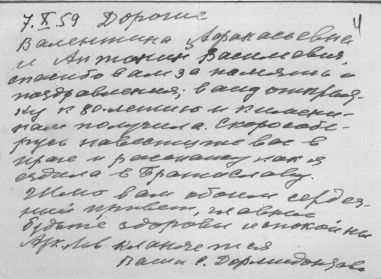 7.X.59 Дорогие 4
Валентина Афанасьевна
и Антонин Васильевич,
спасибо вам за память и
поздравления. Вашу открыт-
ку к 80-летию и именин
нам получила. Скоро собе-
русь навестить вас в
Праге и расскажу как я
ездила в Братиславу.
Шлю вам обоим сердеч-
ный привет, главное
будьте здоровы и спокойны
кланяется
Ваша Е.